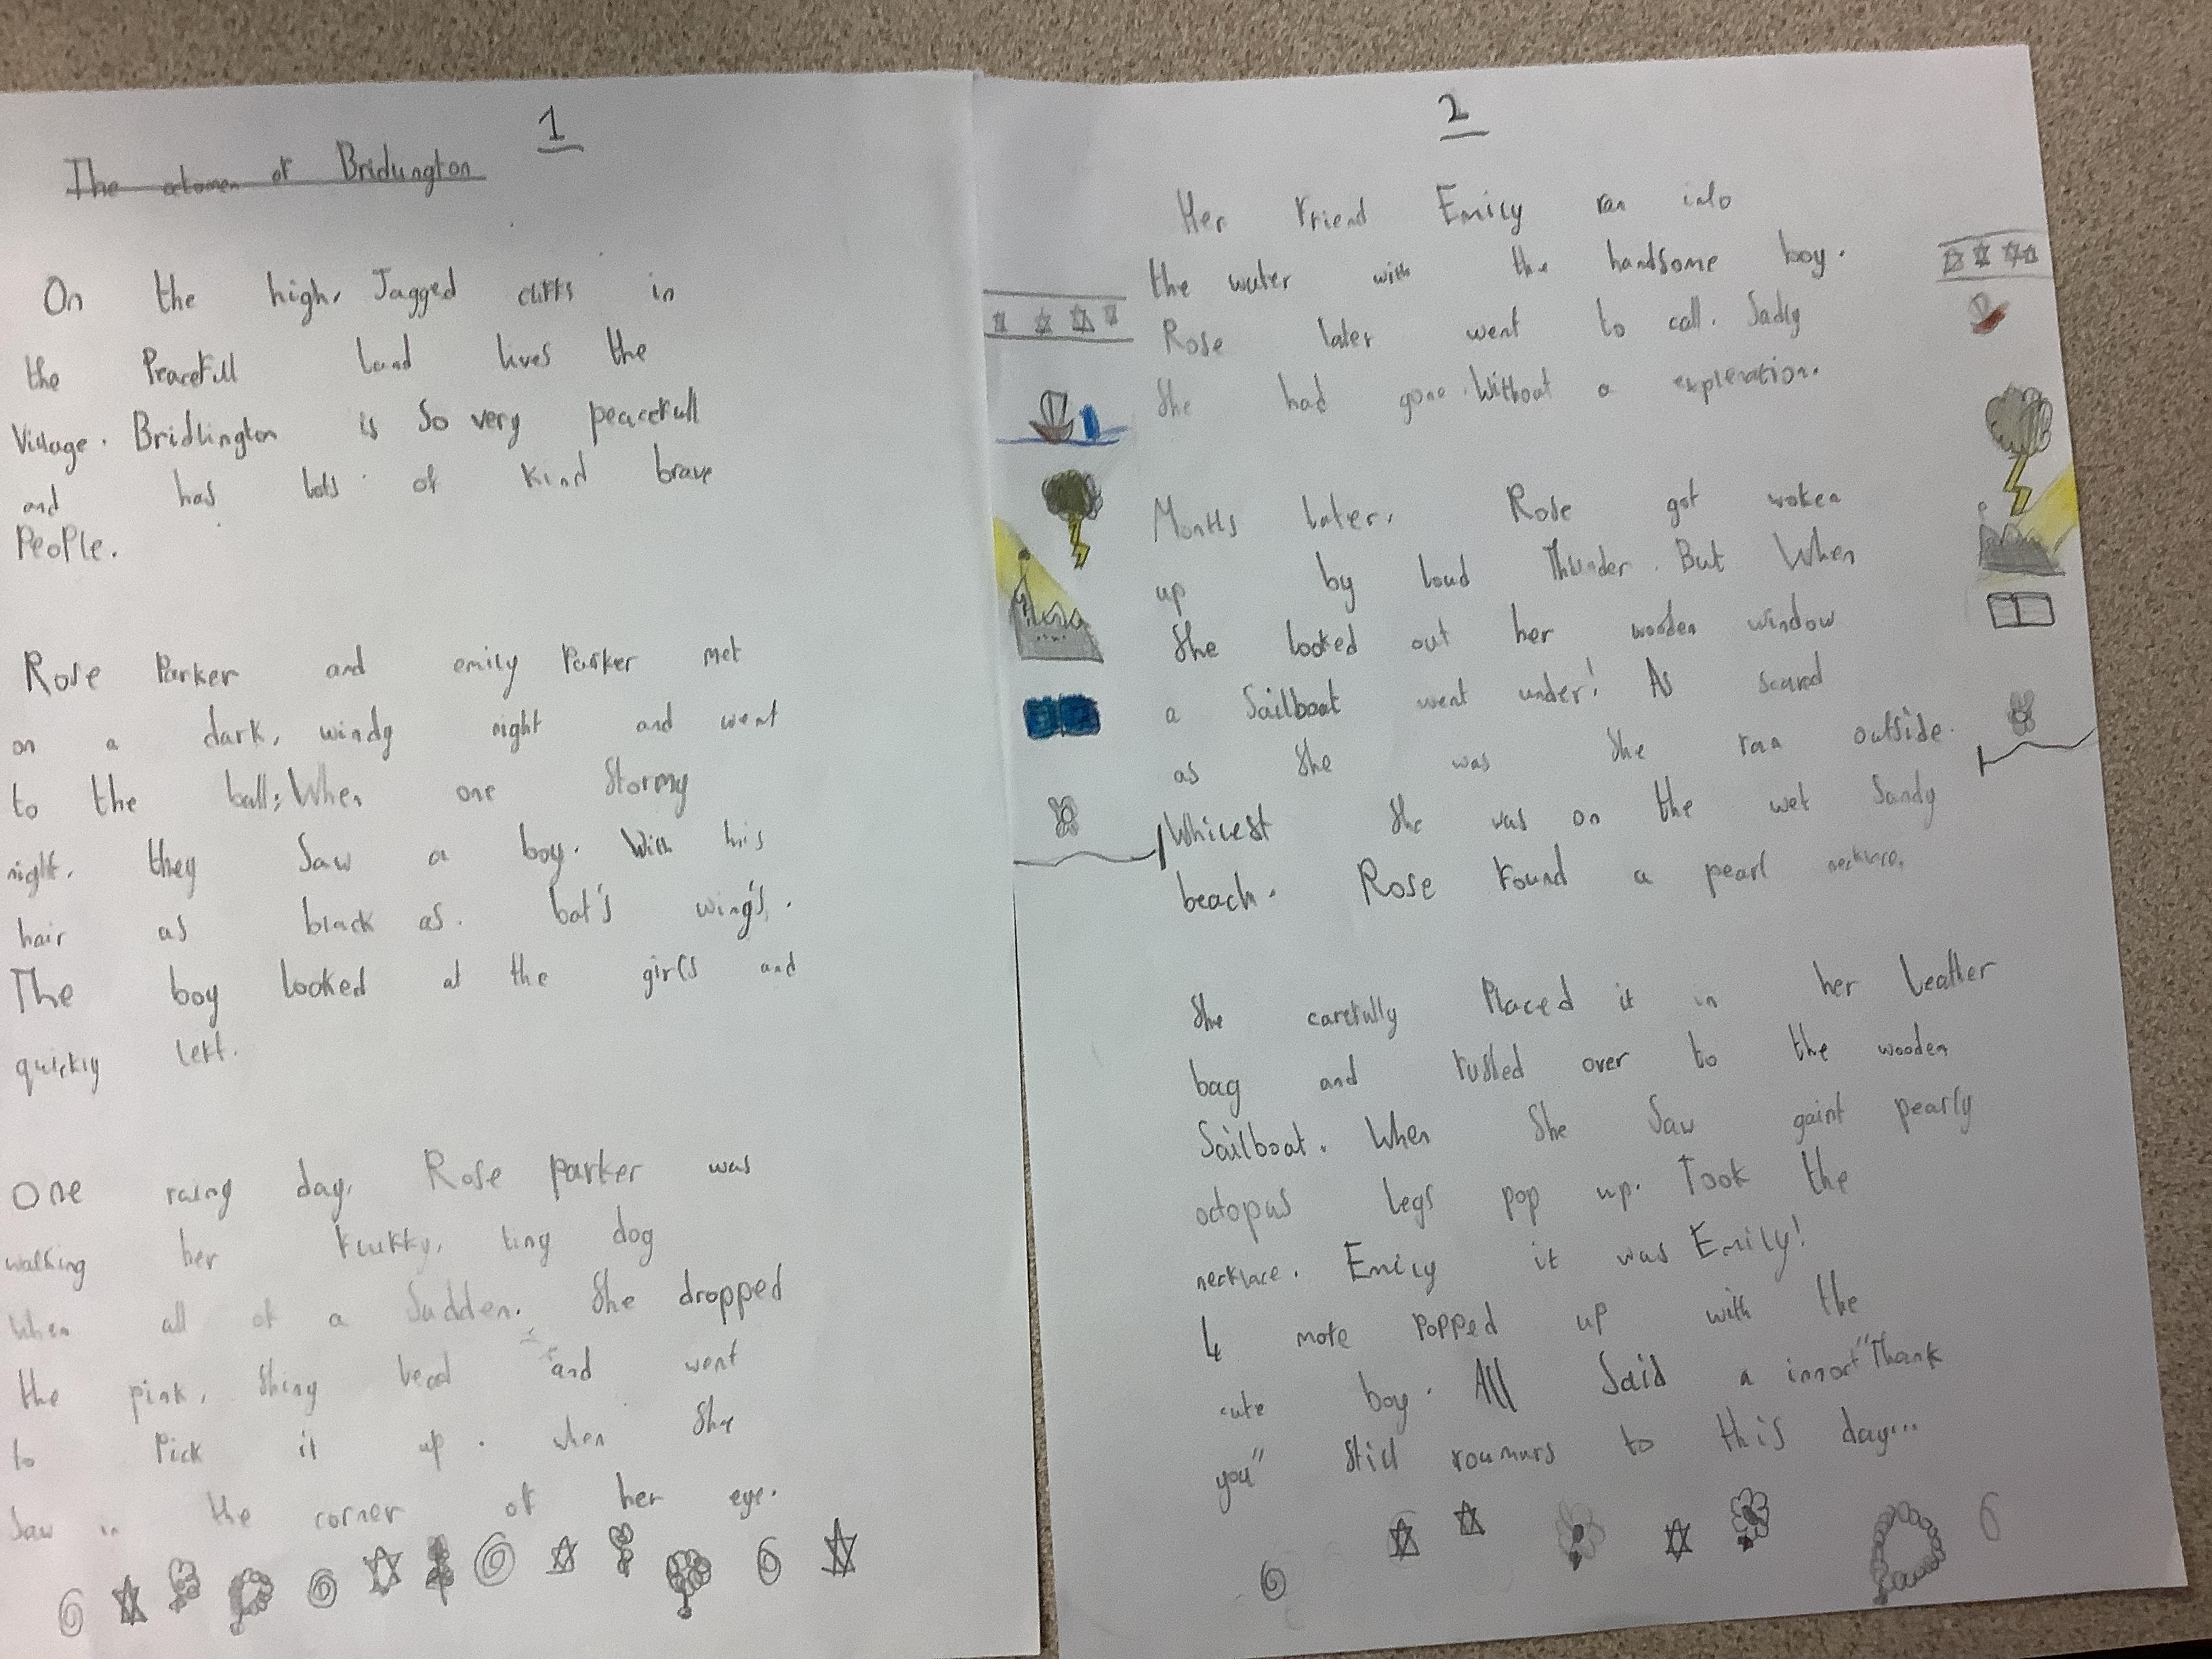 1
The of Bridlington
On the high, Jagged cliffs in
the Peacefull land lives the
Village. Bridlington is so very peacefull
and has lots of kind brave
People.
Rose Parker and emily Parker met
on a dark, windy night and went
to the ball; When one Stormy
night, they Saw a boy. With his
hair as black as. bat's wing's.
The boy looked at the girls and
quickly left.
One rainy day, Rose parker was
walking her fluffy, tiny dog
When all of a Sudden. She dropped
the pink, Shiny bead and went
to Pick it up. when She
Saw in the corner of her eye.
2
Her friend Emily ran into
the water with the handsome boy.
Rose later went to call. Sadly
She had gone. Without a explenation.
Months later, Rose got woken
up by loud Thunder. But When
She looked out her wooden window
a Sailboat went under! As scared
as She was She ran outside.
Whilest She was on the wet Sandy
beach. Rose found a pearl necklace.
She carefully Placed it in her Leather
bag and rushed over to the wooden
Sailboat. When She Saw gaint pearly
octopus legs pop up. Took the
necklace. Emily it was Emily!
4 more popped up with the
cute boy. All Said a "Thank
you" Still roumurs to this day...